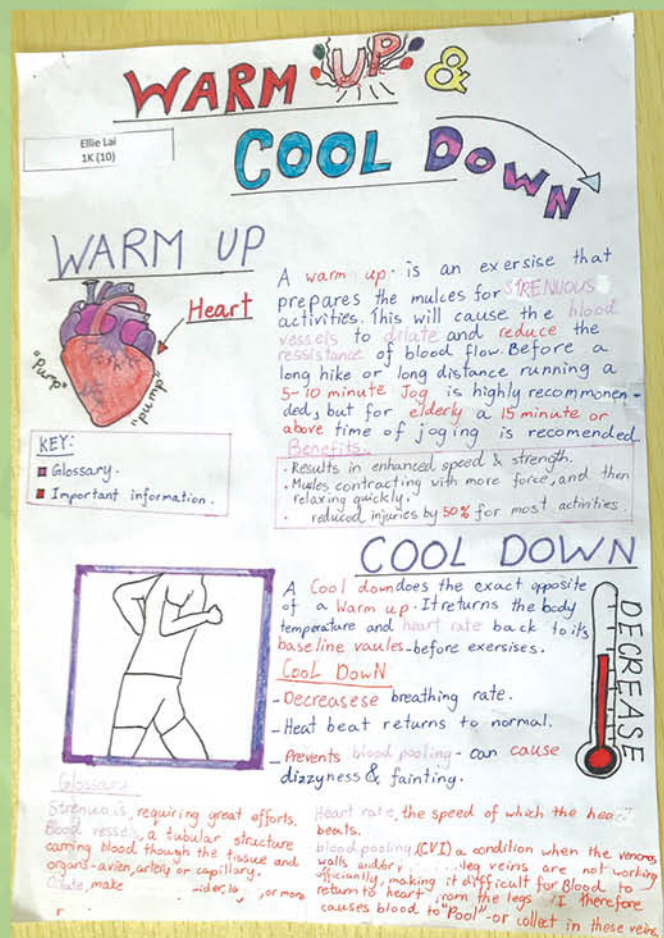 WARM UP &
COOL DOWN
Ellie Lai
1K (10)
WARM UP
Heart
"Pump"
"pump"
KEY:
Glossary.
Important information.
A warm up is an exersise that
prepares the mulces for STRENUOUS
activities. This will cause the blood
vessels to dilate and reduce the
ressistance of blood flow. Before a
long hike or long distance running a
5-10 minute Jog is highly recommonen-
ded, but for elderly a 15 minute or
above time of joging is recomended.
Benefits.
· Results in enhanced speed & strength.
· Mucles contracting with more force, and then
relaxing quickly.
· reduced injuries by 50% for most activities.
COOL DOWN
A Cool down does the exact opposite
of a Warm up. It returns the body
temperature and heart rate back to it's
baseline vaules-before exersises.
COOL DOWN
- Decreasese breathing rate.
- Heat beat returns to normal.
- Prevents blood pooling - can cause
dizzyness & fainting.
DECREASE
Glossary
Strenuous, requiring great efforts.
Blood vessels, a tubular structure
carring blood though the tissue and
organs-a vien, artery or capillary.
Dilate, make or more
Heart rate, the speed of which the heart
beats.
blood pooling, (CVI) a condition when the venous
walls and/or leg veins are not working
officianlly, making it difficult for Blood to
return to heart from the legs. I therefore
causes blood to "Pool"-or collect in these veins.